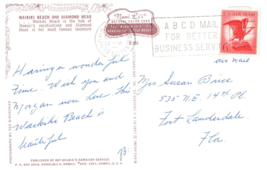 WAIKIKI BEACH AND DIAMOND HEAD
Waikiki Beach is the hub of
Hawaii's
and Diamond
Head is her most famous landmark
Having a wonderful
time. Wish you and
Morgan were here. This
Waikiki Beach is
beautiful
PUBLISHED BY
HAWAIIAN SERVICE
HONOLULU, HAWAII
A B C D MAIL
FOR BETTER
BUSINESS SERVICE
6¢
air mail
Mrs Susan Brice
535 N.E. 14th Pl
Fort Lauderdale
Fla.